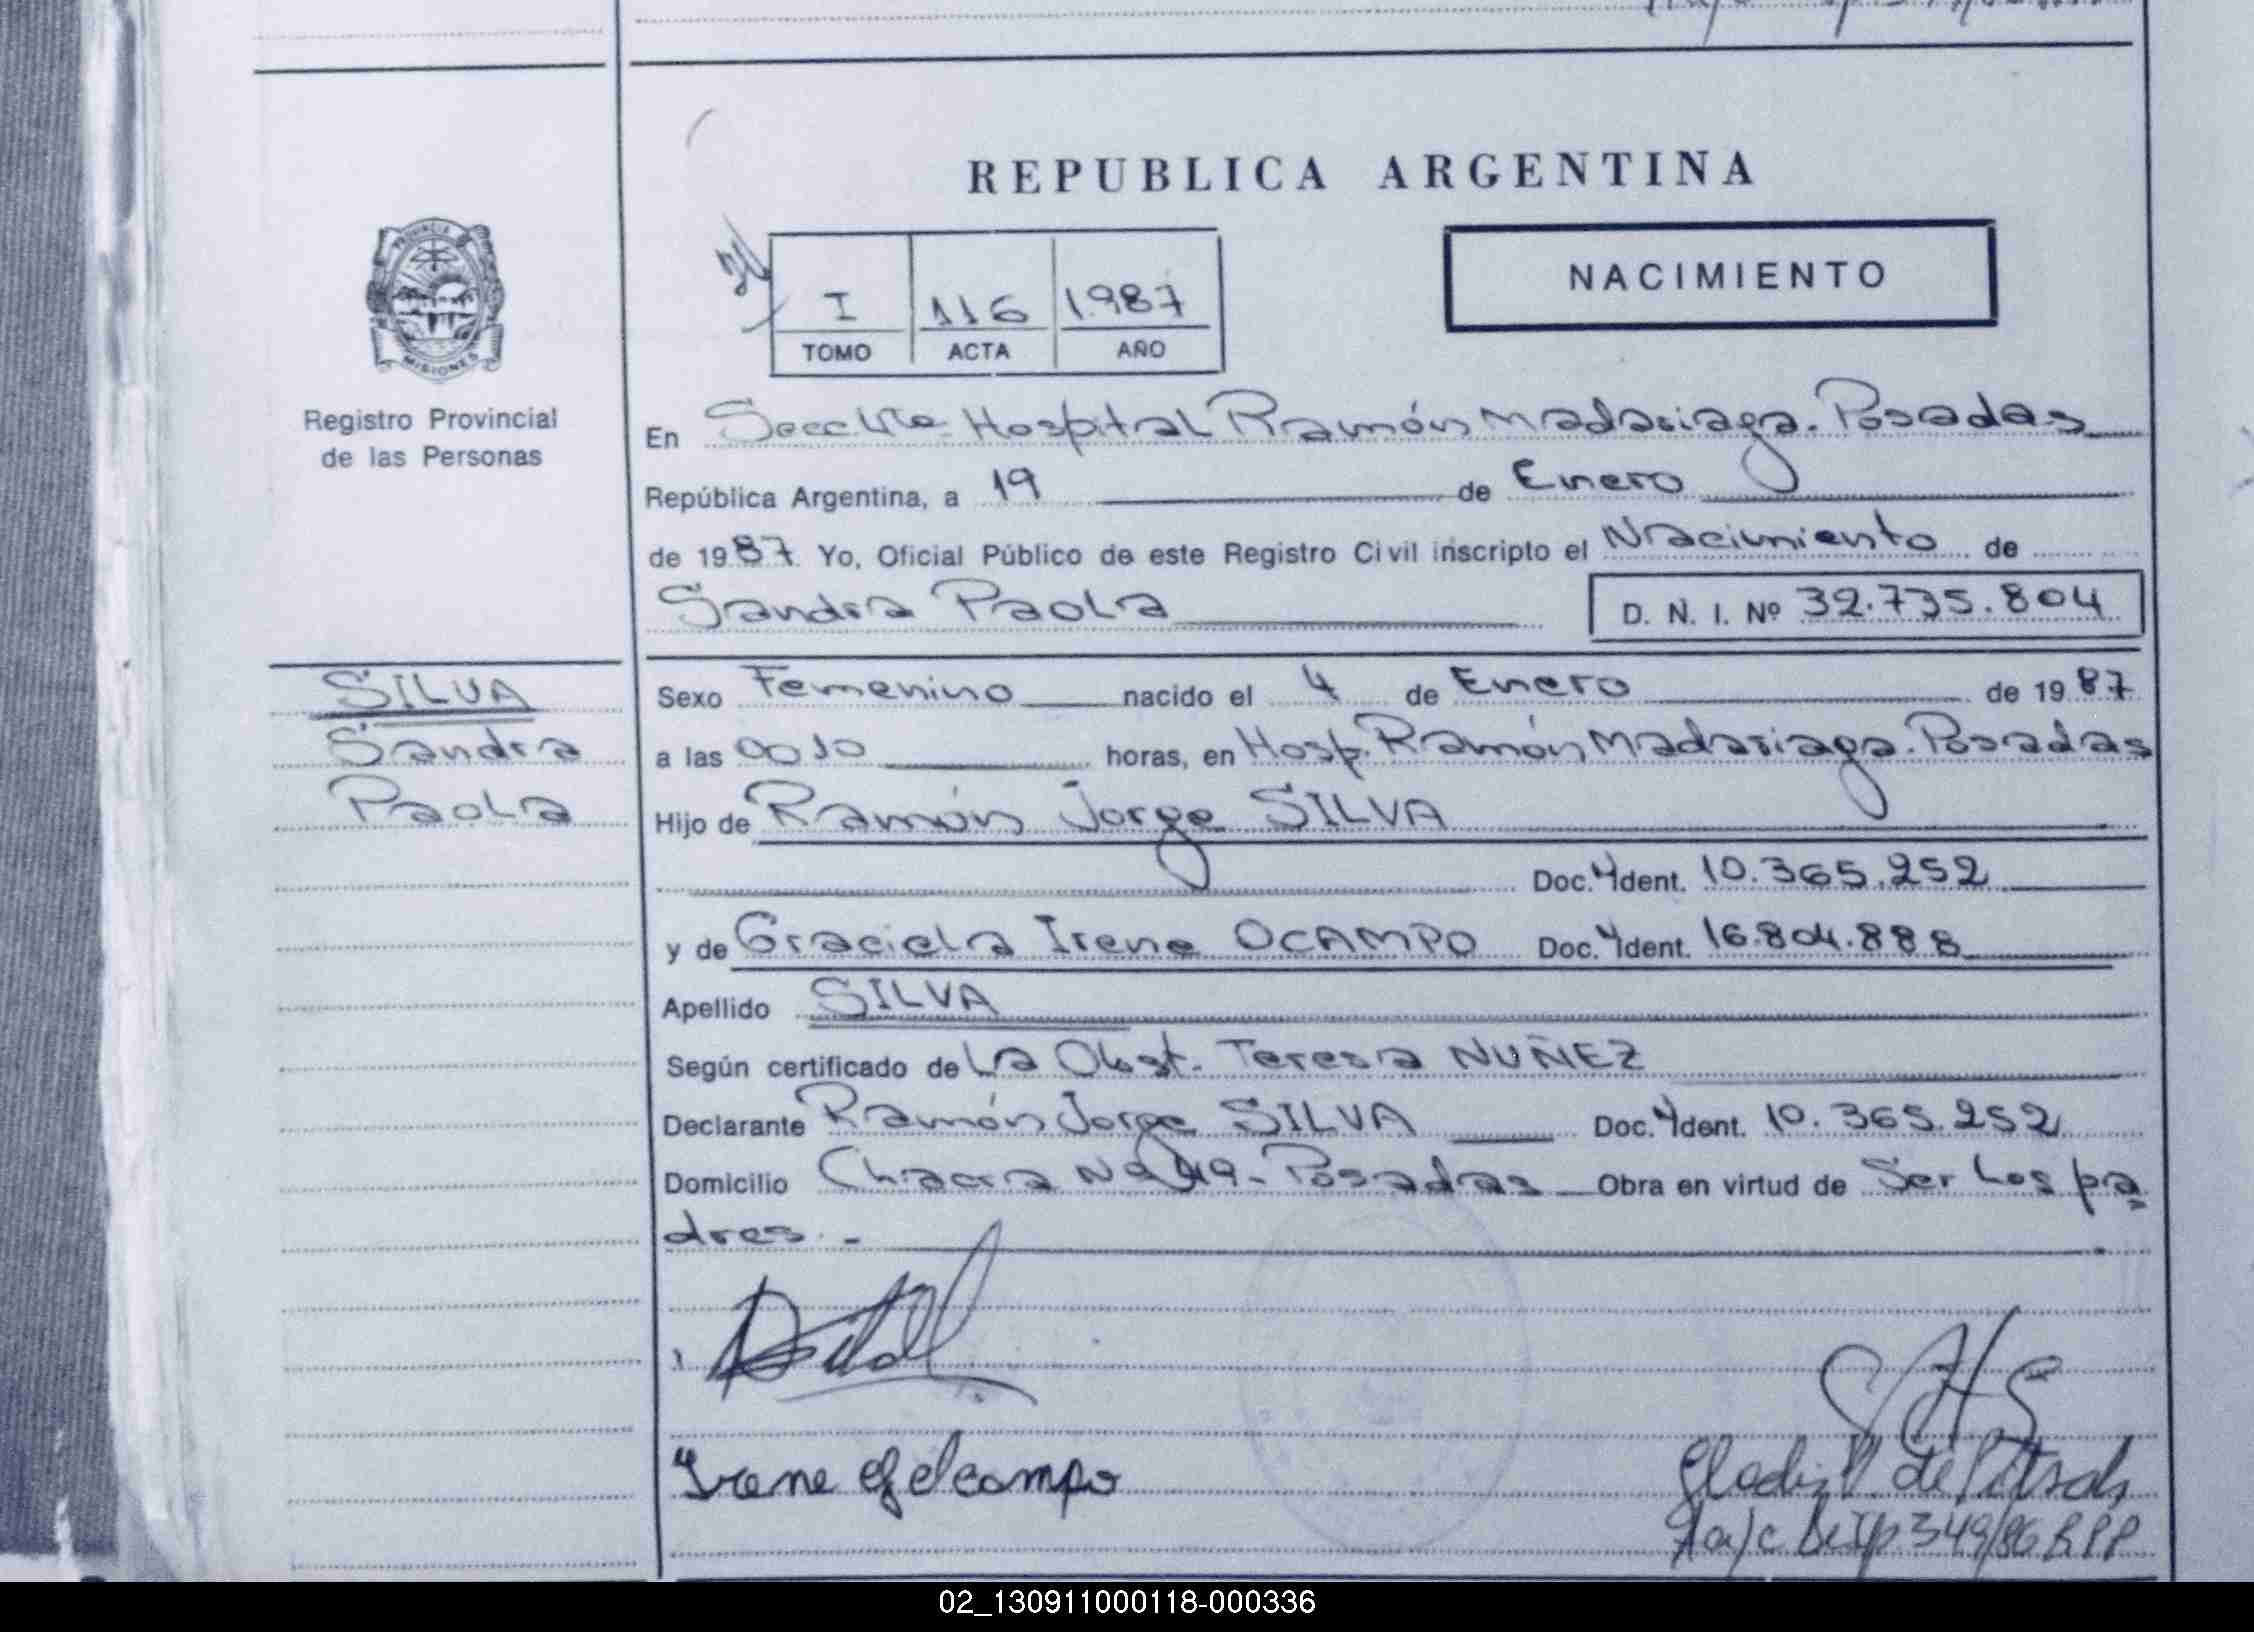 REPUBLICA ARGENTINA
PROVINCIA DE
MISIONES
Registro Provincial
de las Personas
I 116 1987
TOMO ACTA AÑO
NACIMIENTO
En Secc Hospital Ramón Madariaga. Posadas
República Argentina, a 19 de Enero
de 1987 Yo, Oficial Público de este Registro Civil inscripto el Nacimiento de
Sandra Paola D. N. I. Nº 32.735.804
SILVA
Sandra
Paola
Sexo Femenino nacido el 4 de Enero de 1987
a las 0010 horas, en Hosp. Ramón Madariaga. Posadas
Hijo de Ramón Jorge SILVA
Doc. Ident. 10.365.252
y de Graciela Irene OCAMPO Doc. Ident. 16.804.888
Apellido SILVA
Según certificado de La Obst. Teresa NUÑEZ
Declarante Ramón Jorge SILVA Doc. Ident. 10.365.252
Domicilio Chacra Nº 49 - Posadas Obra en virtud de Ser Los pa
dres. -
Irene G de Ocampo
349/86 RPP
02_130911000118-000336